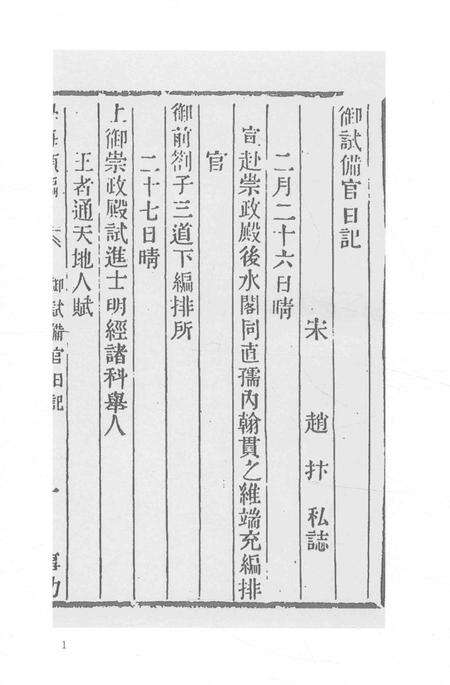 御試備官日記
宋 趙抃 私誌
二月二十六日晴
宣赴崇政殿後水閣同直孺內翰貫之維端充編排
官
御前劄子三道下編排所
二十七日晴
上御崇政殿試進士明經諸科舉人
王者通天地人賦
御試備官日記 一
1